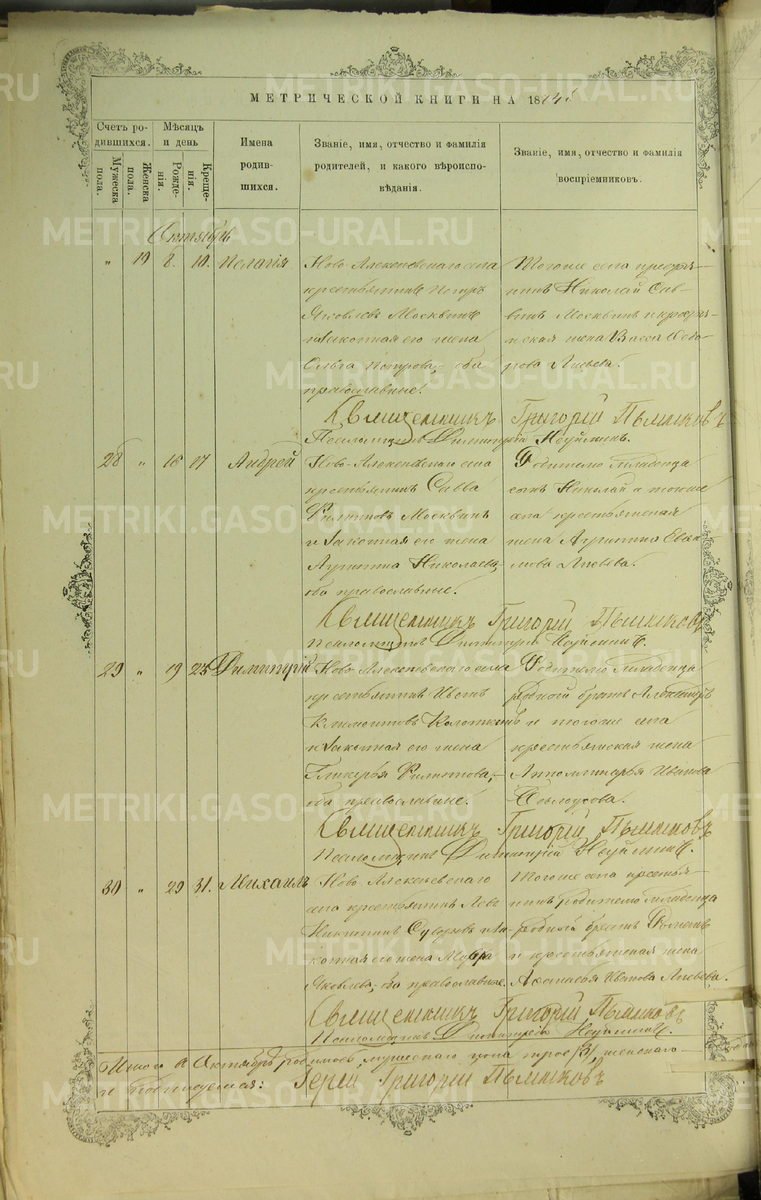 МЕТРИЧЕСКОЙ КНИГИ НА 1874 г.
Счетъ родившихся.
Мужеска пола.
Женска пола.
Мѣсяцъ и день
Рожденія.
Крещенія.
Имена родившихся.
Званіе, имя, отчество и фамилія родителей, и какого вѣроисповѣданія.
Званіе, имя, отчество и фамилія воспріемниковъ.
Октябрь
" 19 8. 10. Пелагія
Ново-Алексѣевскаго села
крестьянинъ Петръ
Яковлевъ Москвинъ
и законная его жена
Ольга Петрова, оба
православные.
Тогоже села крестья-
нинъ Николай Сав-
винъ Москвинъ и крестьян-
ская жена Васса
Священникъ Григорій Пьянковъ
Псаломщикъ Димитрій
28 " 16 17 Андрей
Ново-Алексѣевскаго села
крестьянинъ Савва
Филиповъ Москвинъ
и законная его жена
Агрипина Николаева,
оба православные.
Родителю младенца
сынъ Николай и тогоже
села крестьянская
жена Агрипина
Священникъ Григорій Пьянковъ
Псаломщикъ Димитрій
29 " 19 25 Димитрій
Ново-Алексѣевскаго села
крестьянинъ
Климентовъ
и законная его жена
Гликерья Филипова,
оба православные.
Родителю младенца
родной братъ
и тогоже села
крестьянская жена
Иванова
Священникъ Григорій Пьянковъ
Псаломщикъ Димитрій
30 " 29 31. Михаилъ
Ново Алексѣевскаго
села крестьянинъ Левъ
Никитинъ и за-
конная его жена Мавра
Яковлева, оба православные.
Тогоже села крестья-
нинъ родителю младенца
родной братъ
и крестьянская жена
Афанасья Иванова
Священникъ Григорій Пьянковъ
Псаломщикъ Димитрій
Итого въ Октябрѣ родилось мужескаго пола трое 3, женскаго
Іерей Григорій Пьянковъ
METRIKI.GASO-URAL.RU